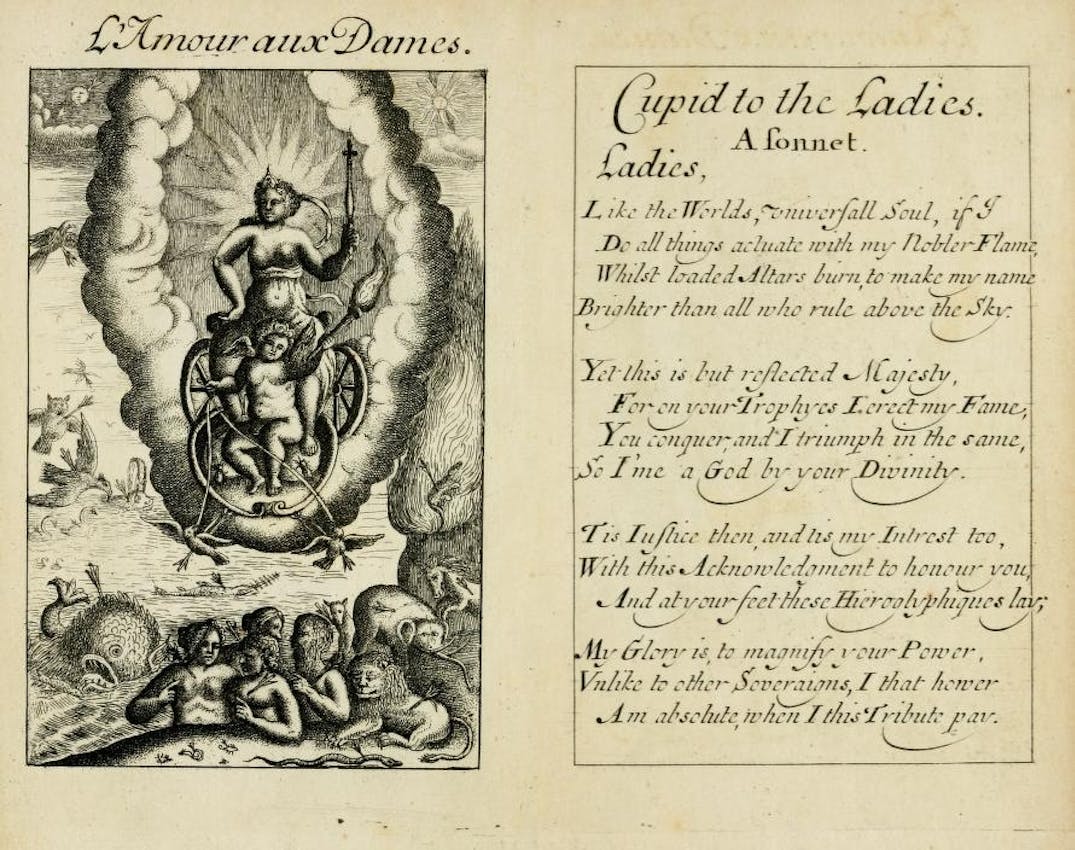 L'Amour aux Dames.
Cupid to the Ladies.
A ſonnet.
Ladies,
Like the Worlds, vniverſall Soul, if I
Do all things actuate with my Nobler Flame,
Whilst loaded Altars burn, to make my name
Brighter than all who rule above the Sky.
Yet this is but reflected Majesty,
For on your Trophyes I erect my Fame,
You conquer, and I triumph in the same,
So I'me a God by your Divinity.
Tis Iuſtice then, and tis my Intrest too,
With this Acknowledgment to honour you,
And at your feet these Hieroglyphiques lay;
My Glory is, to magnify your Power,
Vnlike to other Soveraigns, I that hower
Am absolute, when I this Tribute pay.